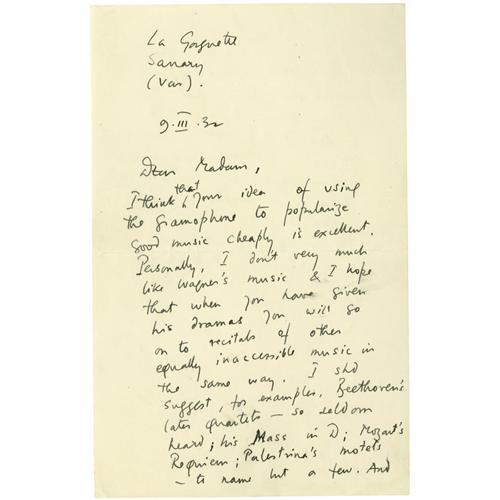 La Gorguette
Sanary
(Var).
9.III.32
Dear Madam,
I think that your idea of using
the gramophone to popularize
good music cheaply is excellent.
Personally, I don't very much
like Wagner's music & I hope
that when you have given
his dramas you will go
on to recitals of other
equally inaccessible music in
the same way. I shd
suggest, for examples, Beethoven's
later quartets – so seldom
heard; his Mass in D; Mozart's
Requiem; Palestrina's motets
– to name but a few. And